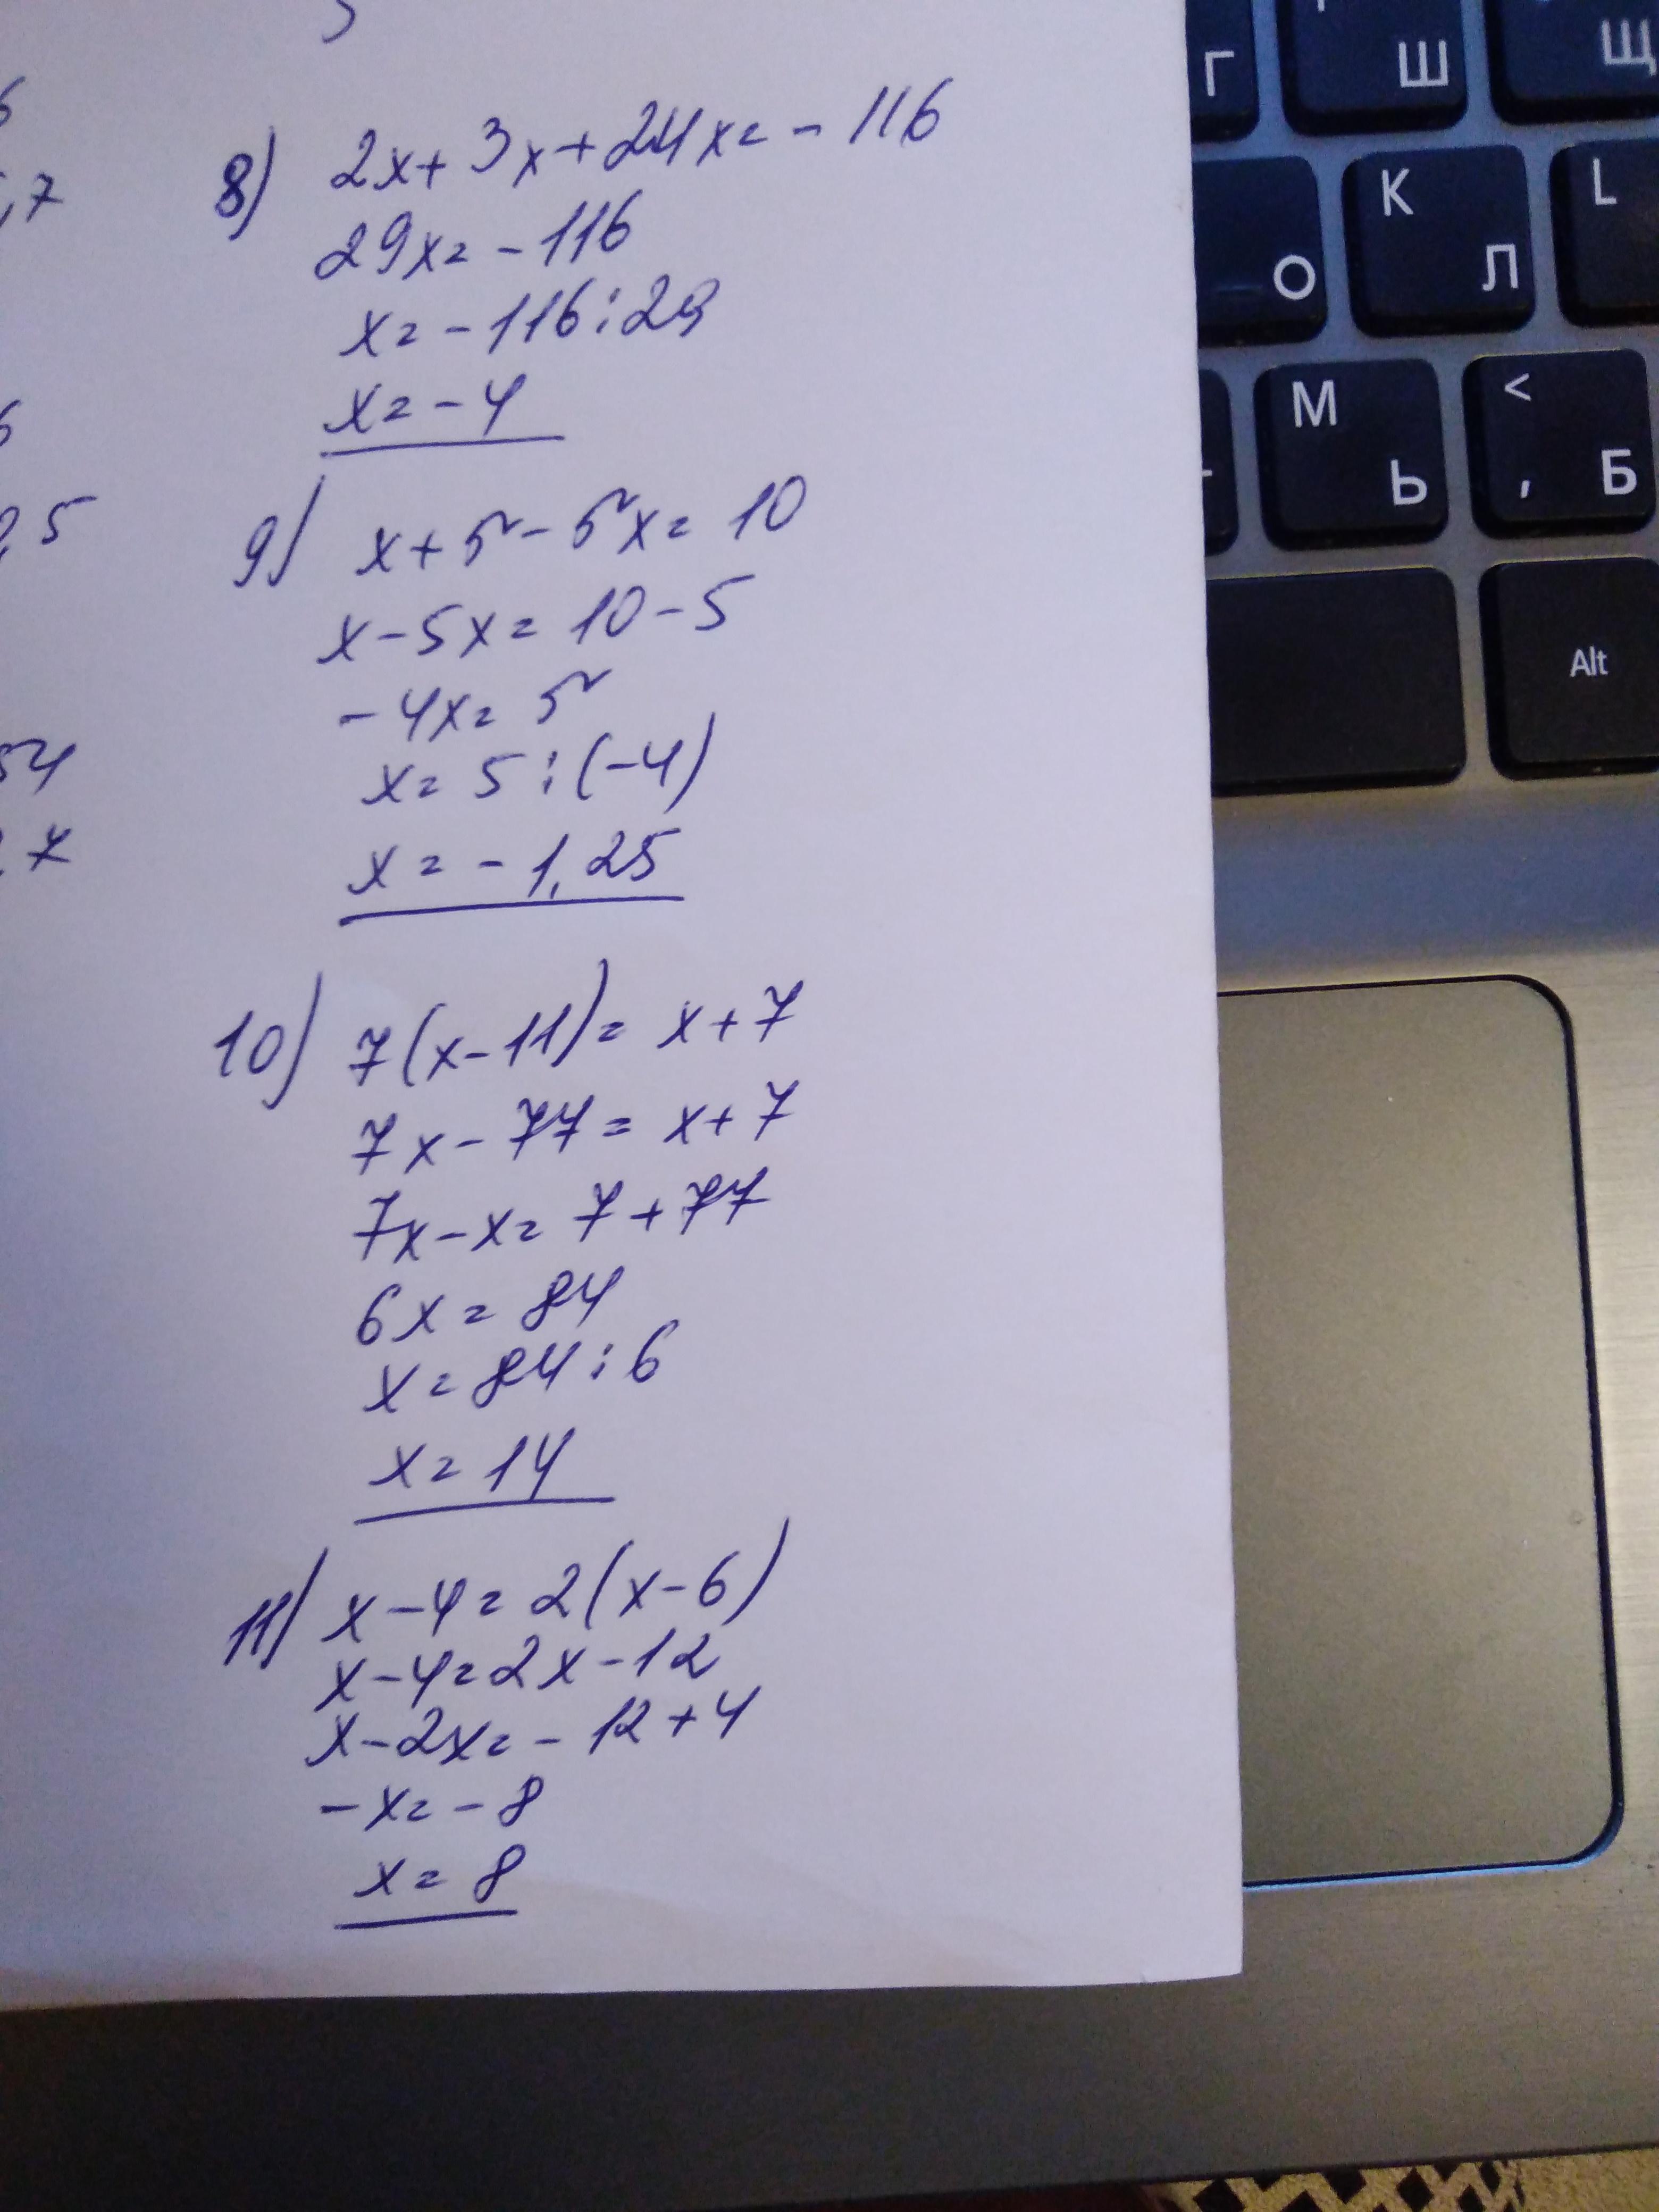 6
,7
6
,5
54
7
8) 2x+3x+24x=-116
29x=-116
x=-116:29
x=-4
9) x+5-5x=10
x-5x=10-5
-4x=5
x=5:(-4)
x=-1,25
10) 7(x-11)=x+7
7x-77=x+7
7x-x=7+77
6x=84
x=84:6
x=14
11) x-4=2(x-6)
x-4=2x-12
x-2x=-12+4
-x=-8
x=8
Г Ш Щ
О K Л L
M Ь < , Б
Alt